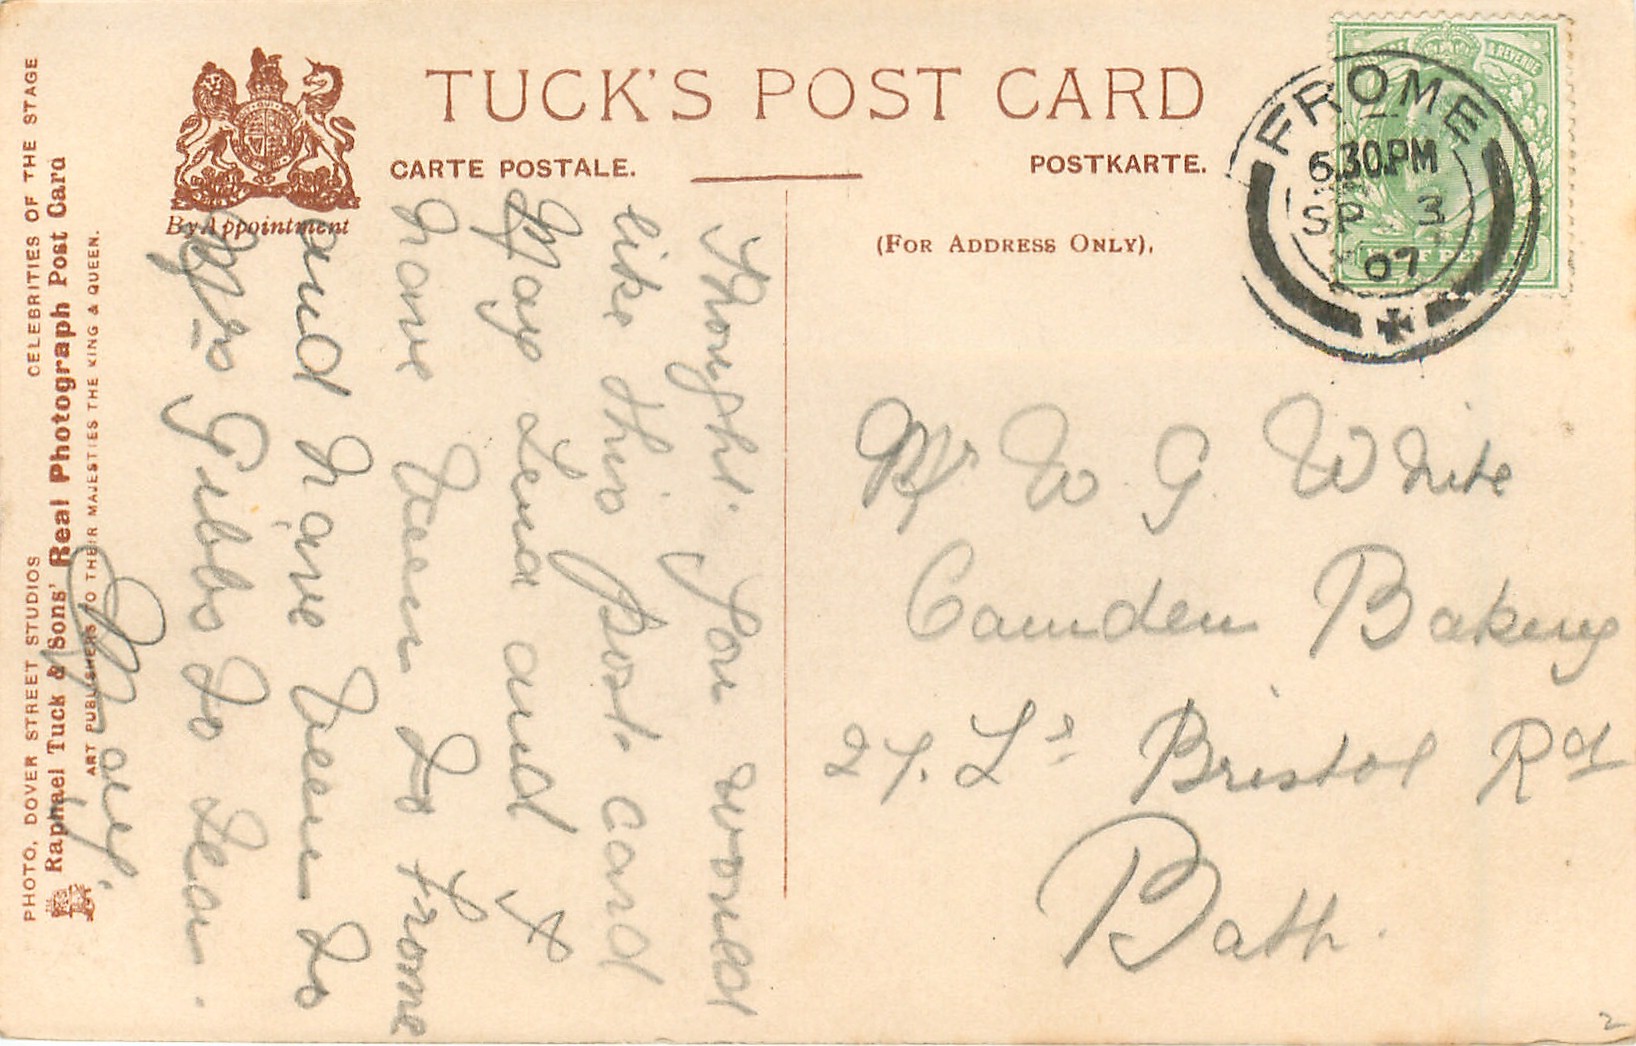 TUCK'S POST CARD
CARTE POSTALE.
POSTKARTE.
(FOR ADDRESS ONLY).
By Appointment
& REVENUE
HALF PENNY
FROME
6.30.PM
SP 3
07
Thought. You would
like this Post. card
May Lena and I
have been to Frome
and have been to
Mrs Gibbs to tea.
May.
Mr W G White
Camden Bakery
27. Lr Bristol Rd
Bath.
PHOTO, DOVER STREET STUDIOS CELEBRITIES OF THE STAGE
Raphael Tuck & Sons' Real Photograph Post Card
ART PUBLISHERS TO THEIR MAJESTIES THE KING & QUEEN.
2